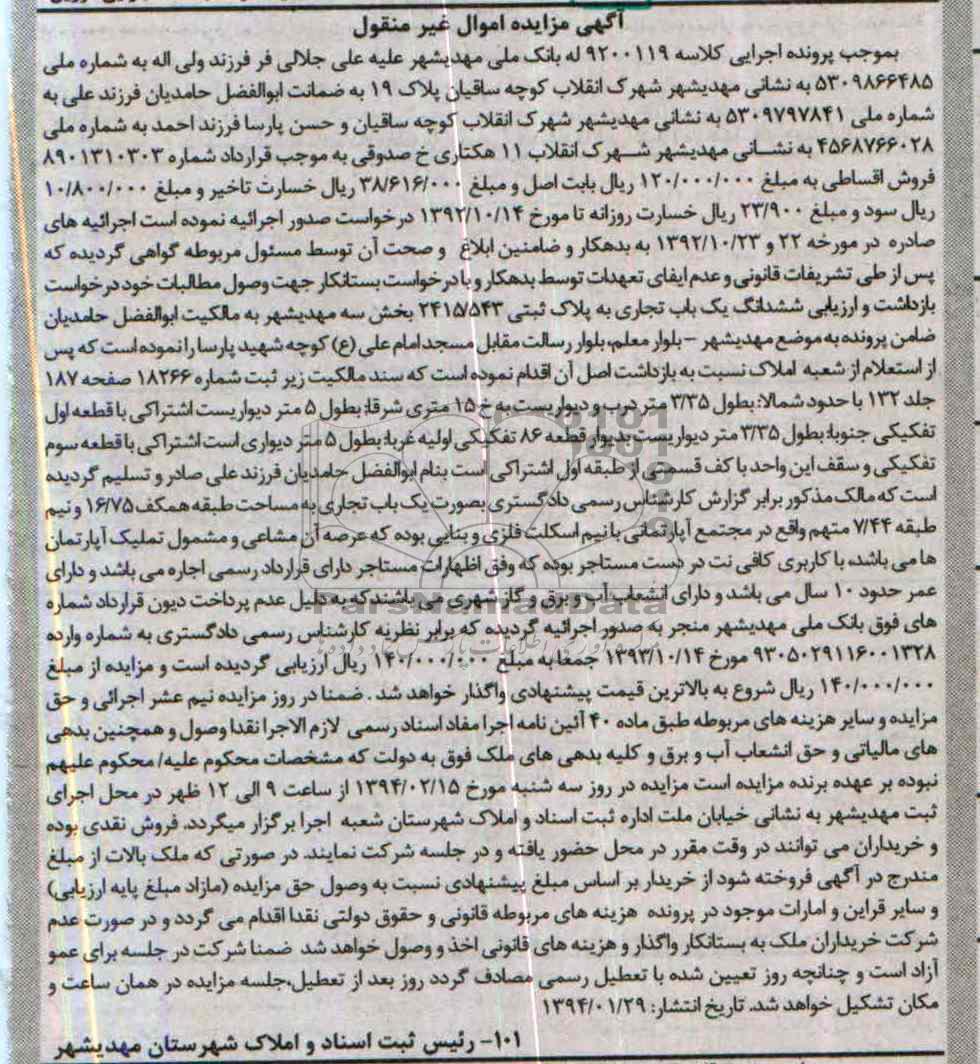 آگهی مزایده اموال غیر منقول
بموجب پرونده اجرایی کلاسه ۹۲۰۰۱۱۹ له بانک ملی مهدیشهر علیه علی جلالی فر فرزند ولی اله به شماره ملی
۵۳۰۹۸۶۶۴۸۵ به نشانی مهدیشهر شهرک انقلاب کوچه ساقیان پلاک ۱۹ به ضمانت ابوالفضل حامدیان فرزند علی به
شماره ملی ۵۳۰۹۷۹۷۸۴۱ به نشانی مهدیشهر شهرک انقلاب کوچه ساقیان و حسن پارسا فرزند احمد به شماره ملی
۴۵۶۸۷۶۶۰۲۸ به نشانی مهدیشهر شهرک انقلاب ۱۱ هکتاری خ صدوقی به موجب قرارداد شماره ۸۹۰۱۳۱۰۳۰۳
فروش اقساطی به مبلغ ۱۲۰/۰۰۰/۰۰۰ ریال بابت اصل و مبلغ ۳۸/۶۱۶/۰۰۰ ریال خسارت تاخیر و مبلغ ۱۰/۸۰۰/۰۰۰
ریال سود و مبلغ ۲۳/۹۰۰ ریال خسارت روزانه تا مورخ ۱۳۹۲/۱۰/۱۴ درخواست صدور اجرائیه نموده است اجرائیه های
صادره در مورخه ۲۲ و ۱۳۹۲/۱۰/۲۳ به بدهکار و ضامنین ابلاغ و صحت آن توسط مسئول مربوطه گواهی گردیده که
پس از طی تشریفات قانونی و عدم ایفای تعهدات توسط بدهکار و با درخواست بستانکار جهت وصول مطالبات خود درخواست
بازداشت و ارزیابی ششدانگ یک باب تجاری به پلاک ثبتی ۲۴۱۵/۵۴۳ بخش سه مهدیشهر به مالکیت ابوالفضل حامدیان
ضامن پرونده به موضع مهدیشهر – بلوار معلم، بلوار رسالت مقابل مسجد امام علی (ع) کوچه شهید پارسا را نموده است که پس
از استعلام از شعبه املاک نسبت به بازداشت اصل آن اقدام نموده است که سند مالکیت زیر ثبت شماره ۱۸۲۶۶ صفحه ۱۸۷
جلد ۱۳۲ با حدود شمالا: بطول ۳/۳۵ متر درب و دیواریست به خ ۱۵ متری شرقا: بطول ۵ متر دیواریست اشتراکی با قطعه اول
تفکیکی جنوبا: بطول ۳/۳۵ متر دیواریست بدیوار قطعه ۸۶ تفکیکی اولیه غربا: بطول ۵ متر دیواری است اشتراکی با قطعه سوم
تفکیکی و سقف این واحد با کف قسمتی از طبقه اول اشتراکی است بنام ابوالفضل حامدیان فرزند علی صادر و تسلیم گردیده
است که مالک مذکور برابر گزارش کارشناس رسمی دادگستری بصورت یک باب تجاری به مساحت طبقه همکف ۱۶/۷۵ و نیم
طبقه ۷/۴۴ متهم واقع در مجتمع آپارتمانی با نیم اسکلت فلزی و بنایی بوده که عرصه آن مشاعی و مشمول تملیک آپارتمان
ها می باشد، با کاربری کافی نت در دست مستاجر بوده که وفق اظهارات مستاجر دارای قرارداد رسمی اجاره می باشد و دارای
عمر حدود ۱۰ سال می باشد و دارای انشعاب آب و برق و گاز شهری می باشند که به دلیل عدم پرداخت دیون قرارداد شماره
های فوق بانک ملی مهدیشهر منجر به صدور اجرائیه گردیده که برابر نظریه کارشناس رسمی دادگستری به شماره وارده
۹۳۰۵۰۲۹۱۱۶۰۰۱۳۲۸ مورخ ۱۳۹۳/۱۰/۱۴ جمعا به مبلغ ۱۴۰/۰۰۰/۰۰۰ ریال ارزیابی گردیده است و مزایده از مبلغ
۱۴۰/۰۰۰/۰۰۰ ریال شروع به بالاترین قیمت پیشنهادی واگذار خواهد شد . ضمنا در روز مزایده نیم عشر اجرائی و حق
مزایده و سایر هزینه های مربوطه طبق ماده ۴۰ آئین نامه اجرا مفاد اسناد رسمی لازم الاجرا نقدا وصول و همچنین بدهی
های مالیاتی و حق انشعاب آب و برق و کلیه بدهی های ملک فوق به دولت که مشخصات محکوم علیه/ محکوم علیهم
نبوده بر عهده برنده مزایده است مزایده در روز سه شنبه مورخ ۱۳۹۴/۰۲/۱۵ از ساعت ۹ الی ۱۲ ظهر در محل اجرای
ثبت مهدیشهر به نشانی خیابان ملت اداره ثبت اسناد و املاک شهرستان شعبه اجرا برگزار میگردد. فروش نقدی بوده
و خریداران می توانند در وقت مقرر در محل حضور یافته و در جلسه شرکت نمایند. در صورتی که ملک بالات از مبلغ
مندرج در آگهی فروخته شود از خریدار بر اساس مبلغ پیشنهادی نسبت به وصول حق مزایده (مازاد مبلغ پایه ارزیابی)
و سایر قراین و امارات موجود در پرونده هزینه های مربوطه قانونی و حقوق دولتی نقدا اقدام می گردد و در صورت عدم
شرکت خریداران ملک به بستانکار واگذار و هزینه های قانونی اخذ و وصول خواهد شد ضمنا شرکت در جلسه برای عمو
آزاد است و چنانچه روز تعیین شده با تعطیل رسمی مصادف گردد روز بعد از تعطیل، جلسه مزایده در همان ساعت و
مکان تشکیل خواهد شد. تاریخ انتشار: ۱۳۹۴/۰۱/۲۹
۱۰۱- رئیس ثبت اسناد و املاک شهرستان مهدیشهر
ParsNamadData